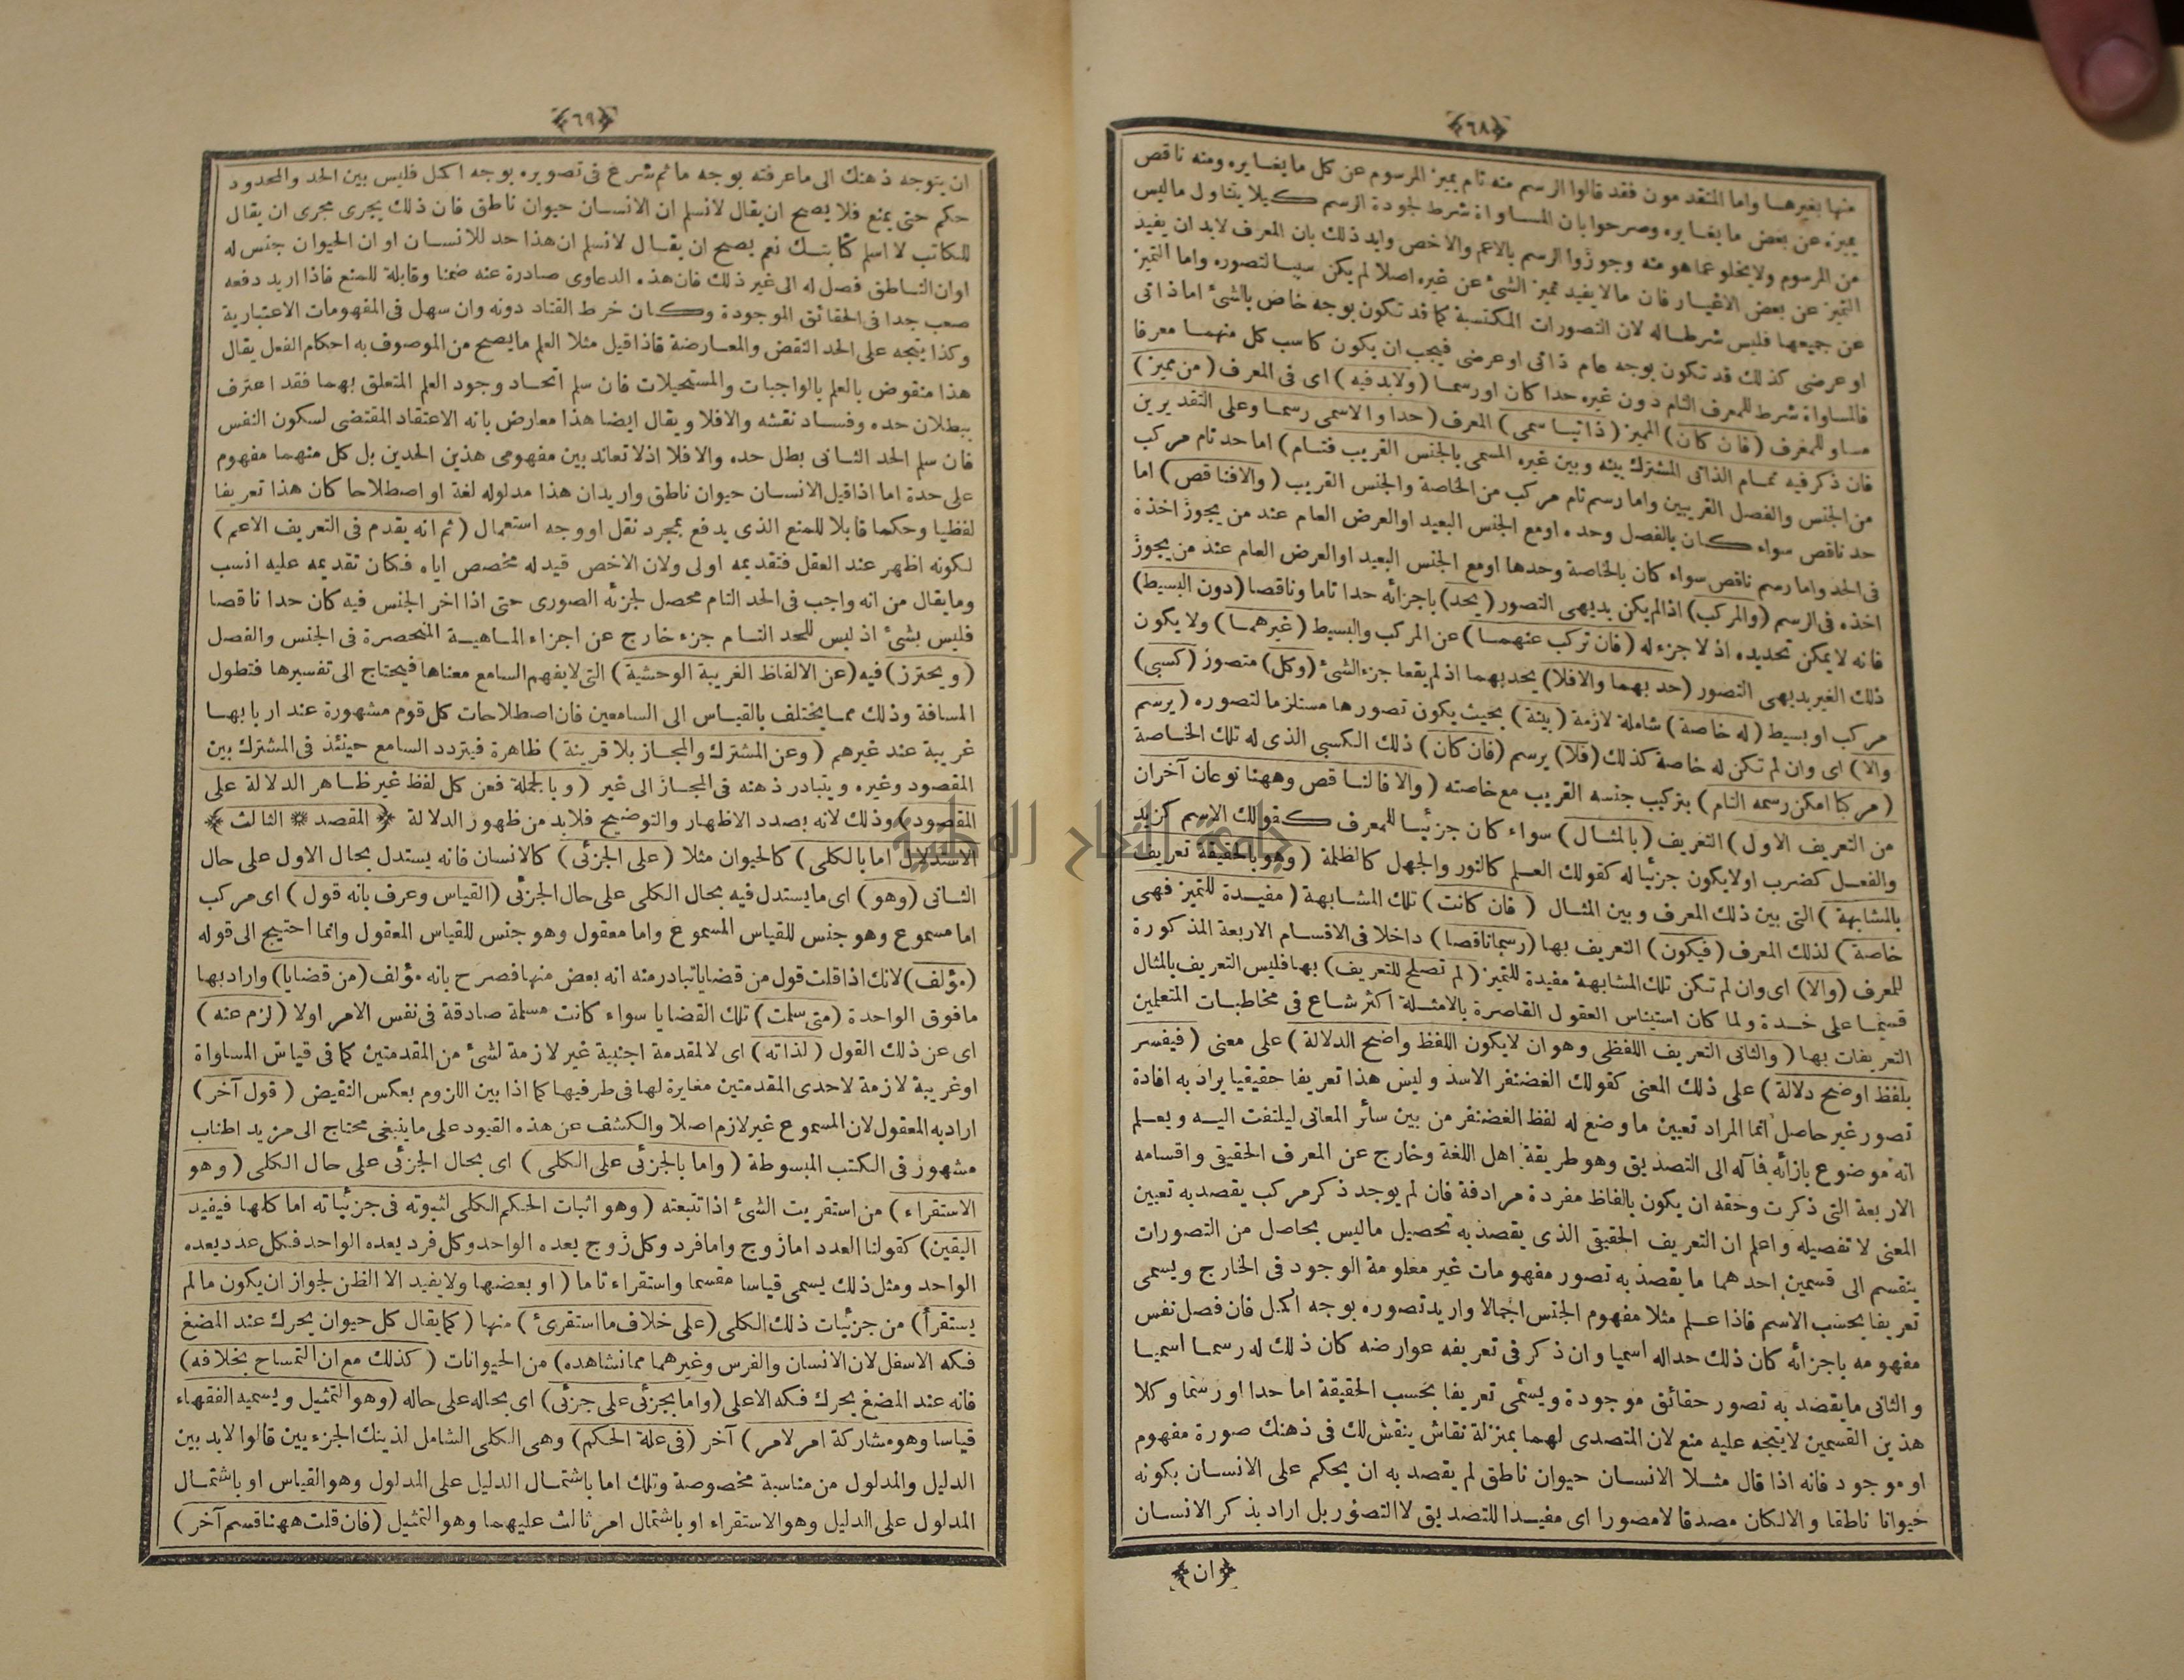 ﴿٦٨﴾
منها بغيرها واما المتقدمون فقد قالوا الرسم منه تام يميز المرسوم عن كل ما يغايره ومنه ناقص
يميزه عن بعض ما يغايره وصرحوا بان المساواة شرط لجودة الرسم كيلا يتناول ما ليس
من المرسوم ولا يخلو عما هو منه وجوزوا الرسم بالاعم والاخص وايد ذلك بان المعرف لابد ان يفيد
التميز عن بعض الاغيار فان ما لا يفيد تميز الشئ عن غيره اصلا لم يكن سببا لتصوره واما التميز
عن جميعها فليس شرطا له لان التصورات المكتسبة كما قد تكون بوجه خاص بالشئ اما ذاتى
او عرضى كذلك قد تكون بوجه عام ذاتى او عرضى فيجب ان يكون كاسب كل منهما معرفا
فالمساواة شرط للمعرف التام دون غيره حدا كان او رسما (ولابد فيه) اى فى المعرف (من مميز)
مساو للمعرف (فان كان) المميز (ذاتيا سمى) المعرف (حدا والا سمى رسما وعلى التقديرين
فان ذكر فيه تمام الذاتى المشترك بينه وبين غيره المسمى بالجنس القريب فتام) اما حد تام مركب
من الجنس والفصل القريبين واما رسم تام مركب من الخاصة والجنس القريب (والا فناقص) اما
حد ناقص سواء كان بالفصل وحده او مع الجنس البعيد او العرض العام عند من يجوز اخذه
فى الحد واما رسم ناقص سواء كان بالخاصة وحدها او مع الجنس البعيد او العرض العام عند من يجوز
اخذه فى الرسم (والمركب) اذا لم يكن بديهى التصور (يحد) باجزائه حدا تاما وناقصا (دون البسيط)
فانه لا يمكن تحديده اذ لا جزء له (فان تركب عنهما) عن المركب والبسيط (غيرهما) ولا يكون
ذلك الغير بديهى التصور (حد بهما والا فلا) يحد بهما اذ لم يقعا جزء الشئ (وكل) متصور (كسبى)
مركب او بسيط (له خاصة) شاملة لازمة (بينة) بحيث يكون تصورها مستلزما لتصوره (يرسم
والا) اى وان لم تكن له خاصة كذلك (فلا) يرسم (فان كان) ذلك الكسبى الذى له تلك الخاصة
(مركبا امكن رسمه التام) بتركيب جنسه القريب مع خاصته (والا فالناقص وههنا نوعان آخران
من التعريف الاول) التعريف (بالمثال) سواء كان جزئيا للمعرف كقولك الاسم كزيد
والفعل كضرب او لا يكون جزئيا له كقولك العلم كالنور والجهل كالظلمة (وهو بالحقيقة تعريف
بالمشابهة) التى بين ذلك المعرف وبين المثال (فان كانت) تلك المشابهة (مفيدة للتميز فهى
خاصة) لذلك المعرف (فيكون) التعريف بها (رسما ناقصا) داخلا فى الاقسام الاربعة المذكورة
للمعرف (والا) اى وان لم تكن تلك المشابهة مفيدة للتميز (لم تصلح للتعريف) بها فليس التعريف بالمثال
قسيما على حدة ولما كان استيناس العقول القاصرة بالامثلة اكثر شاع فى مخاطبات المتعلمين
التعريفات بها (والثانى التعريف اللفظى وهو ان لا يكون اللفظ واضح الدلالة) على معنى (فيفسر
بلفظ اوضح دلالة) على ذلك المعنى كقولك الغضنفر الاسد وليس هذا تعريفا حقيقيا يراد به افادة
تصور غير حاصل انما المراد تعيين ما وضع له لفظ الغضنفر من بين سائر المعانى ليلتفت اليه ويعلم
انه موضوع بازائه فآله الى التصديق وهو طريقة اهل اللغة وخارج عن المعرف الحقيقى واقسامه
الاربعة التى ذكرت وحقه ان يكون بالفاظ مفردة مرادفة فان لم يوجد ذكر مركب يقصد به تعيين
المعنى لا تفصيله واعلم ان التعريف الحقيقى الذى يقصد به تحصيل ما ليس بحاصل من التصورات
ينقسم الى قسمين احدهما ما يقصد به تصور مفهومات غير معلومة الوجود فى الخارج ويسمى
تعريفا بحسب الاسم فاذا علم مثلا مفهوم الجنس اجمالا واريد تصوره بوجه اكمل فان فصل نفس
مفهومه باجزائه كان ذلك حدا له اسميا وان ذكر فى تعريفه عوارضه كان ذلك له رسما اسميا
والثانى ما يقصد به تصور حقائق موجودة ويسمى تعريفا بحسب الحقيقة اما حدا او رسما وكلا
هذين القسمين لا يتجه عليه منع لان المتصدى لهما بمنزلة نقاش ينقش لك فى ذهنك صورة مفهوم
او موجود فانه اذا قال مثلا الانسان حيوان ناطق لم يقصد به ان يحكم على الانسان بكونه
حيوانا ناطقا والا لكان مصدقا لا مصورا اى مفيدا للتصديق لا التصور بل اراد بذكر الانسان
﴿ان﴾
﴿٦٩﴾
ان يتوجه ذهنك الى ما عرفته بوجه ما ثم شرع فى تصويره بوجه اكمل فليس بين الحد والمحدود
حكم حتى يمنع فلا يصح ان يقال لا نسلم ان الانسان حيوان ناطق فان ذلك يجرى مجرى ان يقال
للكاتب لا اسلم كتابتك نعم يصح ان يقال لا نسلم ان هذا حد للانسان او ان الحيوان جنس له
او ان الناطق فصل له الى غير ذلك فان هذه الدعاوى صادرة عنه ضمنا وقابلة للمنع فاذا اريد دفعه
صعب جدا فى الحقائق الموجودة وكان خرط القتاد دونه وان سهل فى المفهومات الاعتبارية
وكذا يتجه على الحد النقض والمعارضة فاذا قيل مثلا العلم ما يصح من الموصوف به احكام الفعل يقال
هذا منقوض بالعلم بالواجبات والمستحيلات فان سلم اتحاد وجود العلم المتعلق بهما فقد اعترف
ببطلان حده وفساد نقشه والا فلا ويقال ايضا هذا معارض بانه الاعتقاد المقتضى لسكون النفس
فان سلم الحد الثانى بطل حده والا فلا اذ لا تعاند بين مفهومى هذين الحدين بل كل منهما مفهوم
على حدة اما اذا قيل الانسان حيوان ناطق واريد ان هذا مدلوله لغة او اصطلاحا كان هذا تعريفا
لفظيا وحكما قابلا للمنع الذى يدفع بمجرد نقل او وجه استعمال (ثم انه يقدم فى التعريف الاعم)
لكونه اظهر عند العقل فتقديمه اولى ولان الاخص قيد له مخصص اياه فكان تقديمه عليه انسب
وما يقال من انه واجب فى الحد التام محصل لجزئه الصورى حتى اذا اخر الجنس فيه كان حدا ناقصا
فليس بشئ اذ ليس للحد التام جزء خارج عن اجزاء الماهية المنحصرة فى الجنس والفصل
(ويحترز) فيه (عن الالفاظ الغريبة الوحشية) التى لا يفهم السامع معناها فيحتاج الى تفسيرها فتطول
المسافة وذلك مما يختلف بالقياس الى السامعين فان اصطلاحات كل قوم مشهورة عند اربابها
غريبة عند غيرهم (وعن المشترك والمجاز بلا قرينة) ظاهرة فيتردد السامع حينئذ فى المشترك بين
المقصود وغيره ويتبادر ذهنه فى المجاز الى غير (وبالجملة فعن كل لفظ غير ظاهر الدلالة على
المقصود) وذلك لانه بصدد الاظهار والتوضيح فلابد من ظهور الدلالة ﴿المقصد * الثالث﴾
الاستدلال اما بالكلى) كالحيوان مثلا (على الجزئى) كالانسان فانه يستدل بحال الاول على حال
الثانى (وهو) اى ما يستدل فيه بحال الكلى على حال الجزئى (القياس وعرف بانه قول) اى مركب
اما مسموع وهو جنس للقياس المسموع واما معقول وهو جنس للقياس المعقول وانما احتيج الى قوله
(مؤلف) لانك اذا قلت قول من قضايا تبادر منه انه بعض منها فصرح بانه مؤلف (من قضايا) واراد بها
ما فوق الواحدة (متى سلمت) تلك القضايا سواء كانت مسلمة صادقة فى نفس الامر اولا (لزم عنه)
اى عن ذلك القول (لذاته) اى لا لمقدمة اجنبية غير لازمة لشئ من المقدمتين كما فى قياس المساواة
او غريبة لازمة لاحدى المقدمتين مغايرة لها فى طرفيها كما اذا بين اللزوم بعكس النقيض (قول آخر)
اراد به المعقول لان المسموع غير لازم اصلا والكشف عن هذه القيود على ما ينبغى محتاج الى مزيد اطناب
مشهور فى الكتب المبسوطة (واما بالجزئى على الكلى) اى بحال الجزئى على حال الكلى (وهو
الاستقراء) من استقريت الشئ اذا تتبعته (وهو اثبات الحكم الكلى لثبوته فى جزئياته اما كلها فيفيد
اليقين) كقولنا العدد اما زوج واما فرد وكل زوج يعده الواحد وكل فرد يعده الواحد فكل عدد يعده
الواحد ومثل ذلك يسمى قياسا مقسما واستقراء تاما (او بعضها ولا يفيد الا الظن لجواز ان يكون ما لم
يستقرأ) من جزئيات ذلك الكلى (على خلاف ما استقرئ) منها (كما يقال كل حيوان يحرك عند المضغ
فكه الاسفل لان الانسان والفرس وغيرهما مما نشاهده) من الحيوانات (كذلك مع ان التمساح بخلافه)
فانه عند المضغ يحرك فكه الاعلى (واما بجزئى على جزئى) اى بحاله على حاله (وهو التمثيل ويسميه الفقهاء
قياسا وهو مشاركة امر لامر) آخر (فى علة الحكم) وهى الكلى الشامل لذينك الجزءيين قالوا لابد بين
الدليل والمدلول من مناسبة مخصوصة وتلك اما باشتمال الدليل على المدلول وهو القياس او باشتمال
المدلول على الدليل وهو الاستقراء او باشتمال امر ثالث عليهما وهو التمثيل (فان قلت ههنا قسم آخر)
جامعة النجاح الوطنية